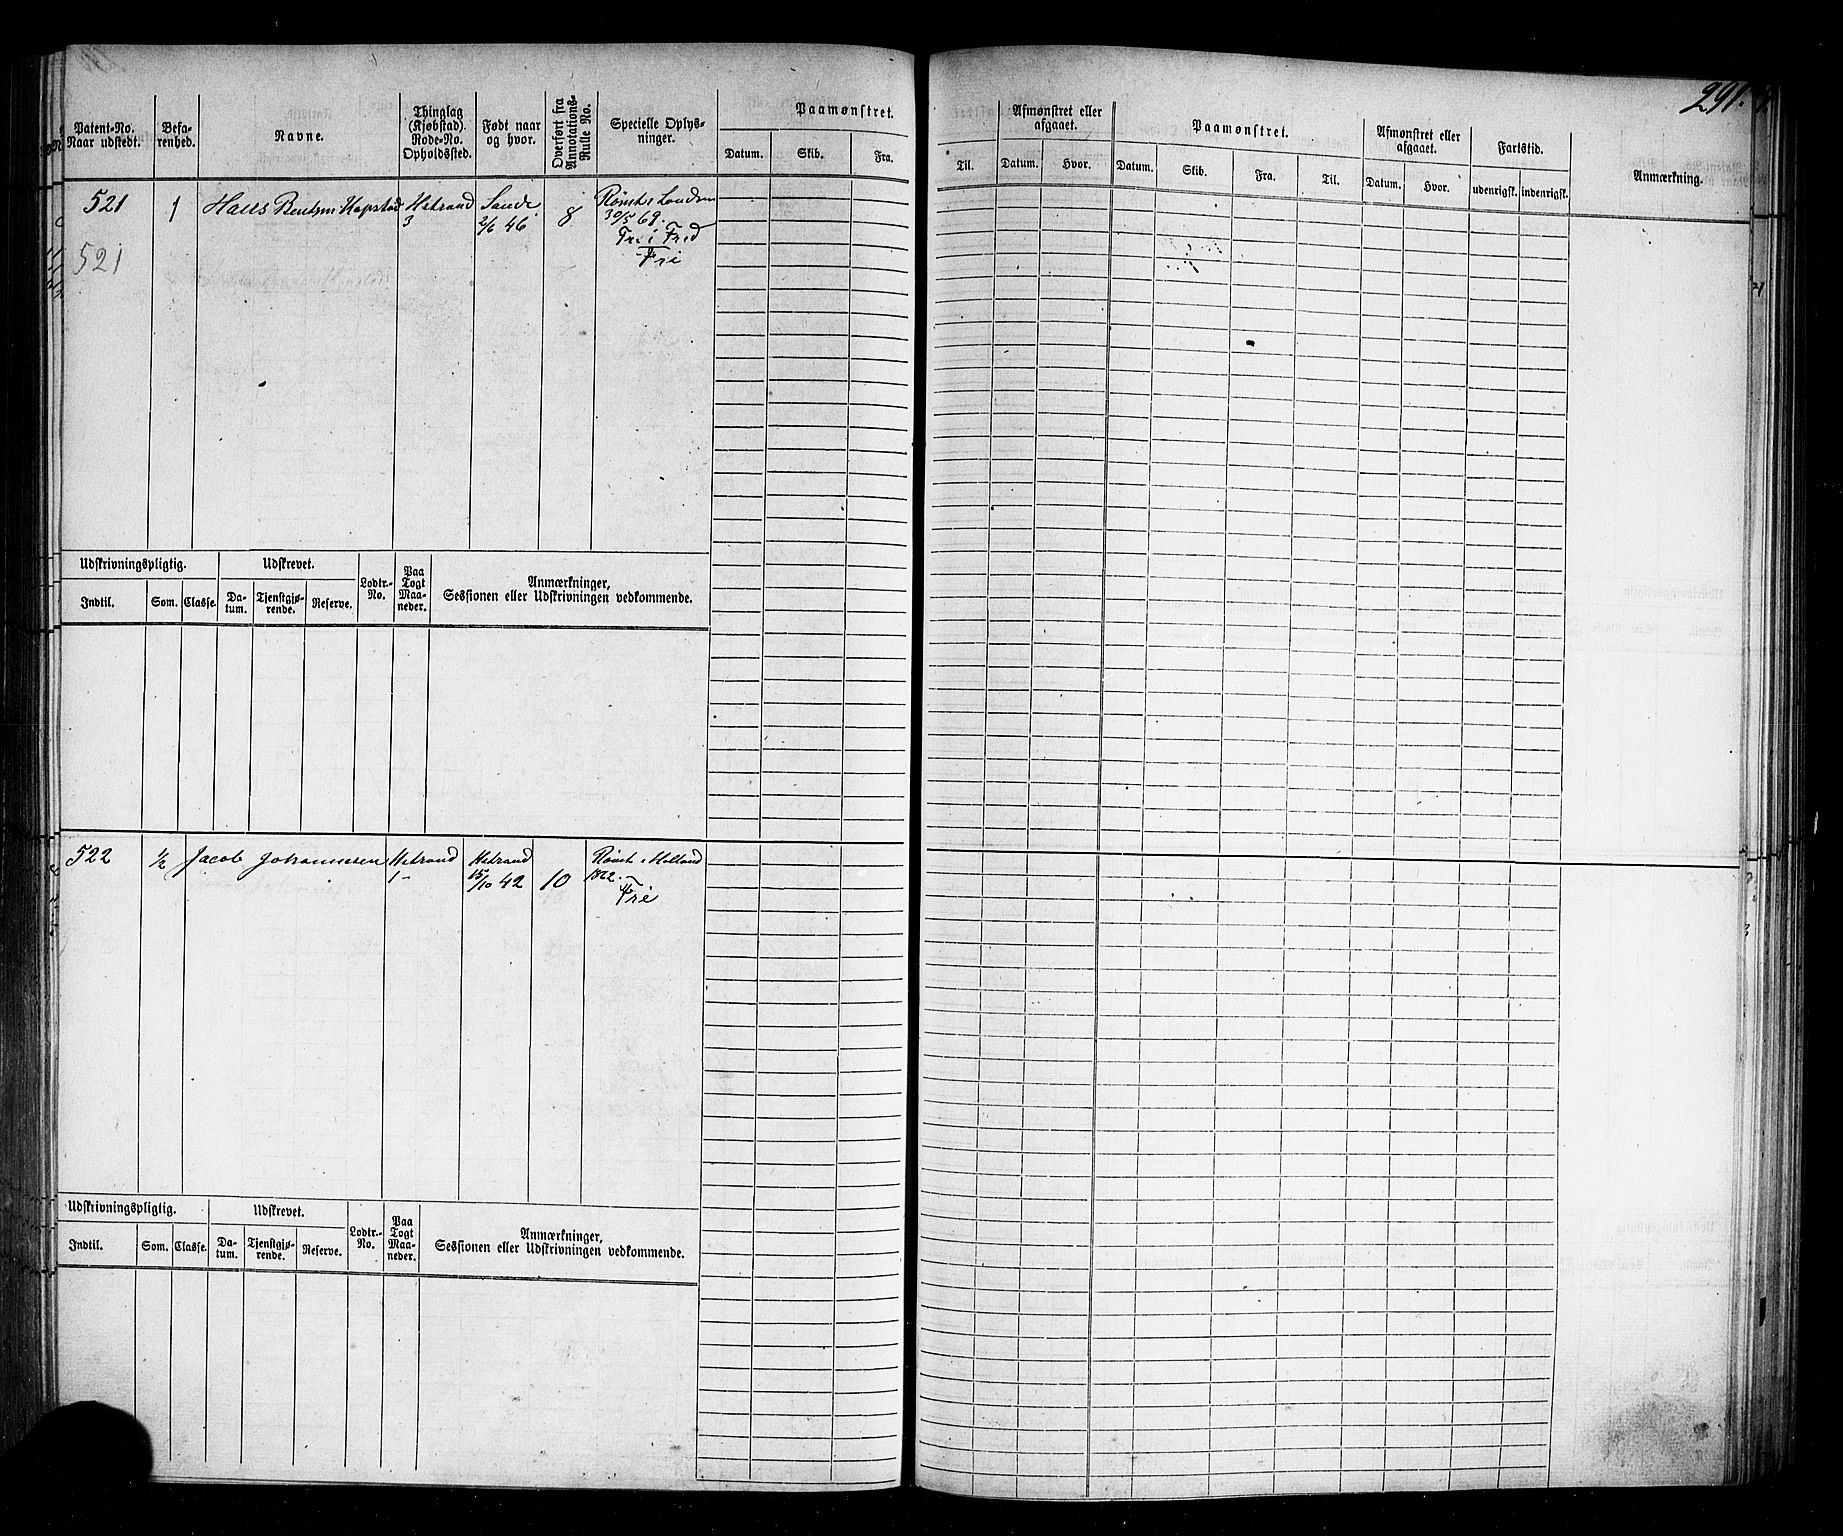 291.
Patent-No. Naar udstedt.
Befarenhed.
Navne.
Thinglag (Kjøbstad). Rode-No. Opholdssted.
Født naar og hvor.
Overført fra Annotations-Rulle No.
Specielle Oplysninger.
Paamønstret.
Datum. Skib. Fra.
Til.
Afmønstret eller afgaaet.
Datum. Hvor.
Paamønstret.
Datum. Skib. Fra. Til.
Afmønstret eller afgaaet.
Datum. Hvor.
Fartstid.
udenrigsk. indenrigsk.
Anmærkning.
521 1 Hans Bentsen Hapstad Hstrand Sande 8 Rømt i London
3 2/6 46 30/5 69.
Fri
521
Udskrivningspligtig. Udskrevet. Lodtr.-No. Paa Togt Maaneder. Anmærkninger,
Sessionen eller Udskrivningen vedkommende.
Indtil. Som. Classe. Datum. Tjenstgjørende. Reserve.
522 1/2 Jacob Johannesen Hstrand Hstrand 10 Rømt i Holland
1 15/10 42 1862.
Fri
Udskrivningspligtig. Udskrevet. Lodtr.-No. Paa Togt Maaneder. Anmærkninger,
Sessionen eller Udskrivningen vedkommende.
Indtil. Som. Classe. Datum. Tjenstgjørende. Reserve.